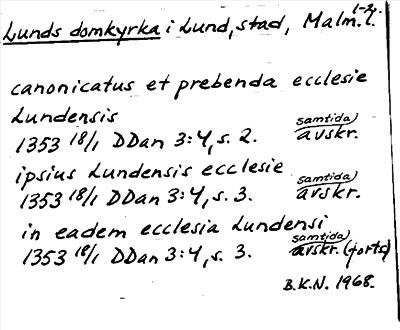 Lunds domkyrka i Lund, stad, Malm. l. 1-2.
canonicatus et prebenda ecclesie
Lundensis
1353 18/1 DDan 3:4, s. 2. samtida avskr.
ipsius Lundensis ecclesie
1353 18/1 DDan 3:4, s. 3. samtida avskr.
in eadem ecclesia Lundensi
1353 18/1 DDan 3:4, s. 3. samtida avskr. (forts)
B.K.N. 1968.